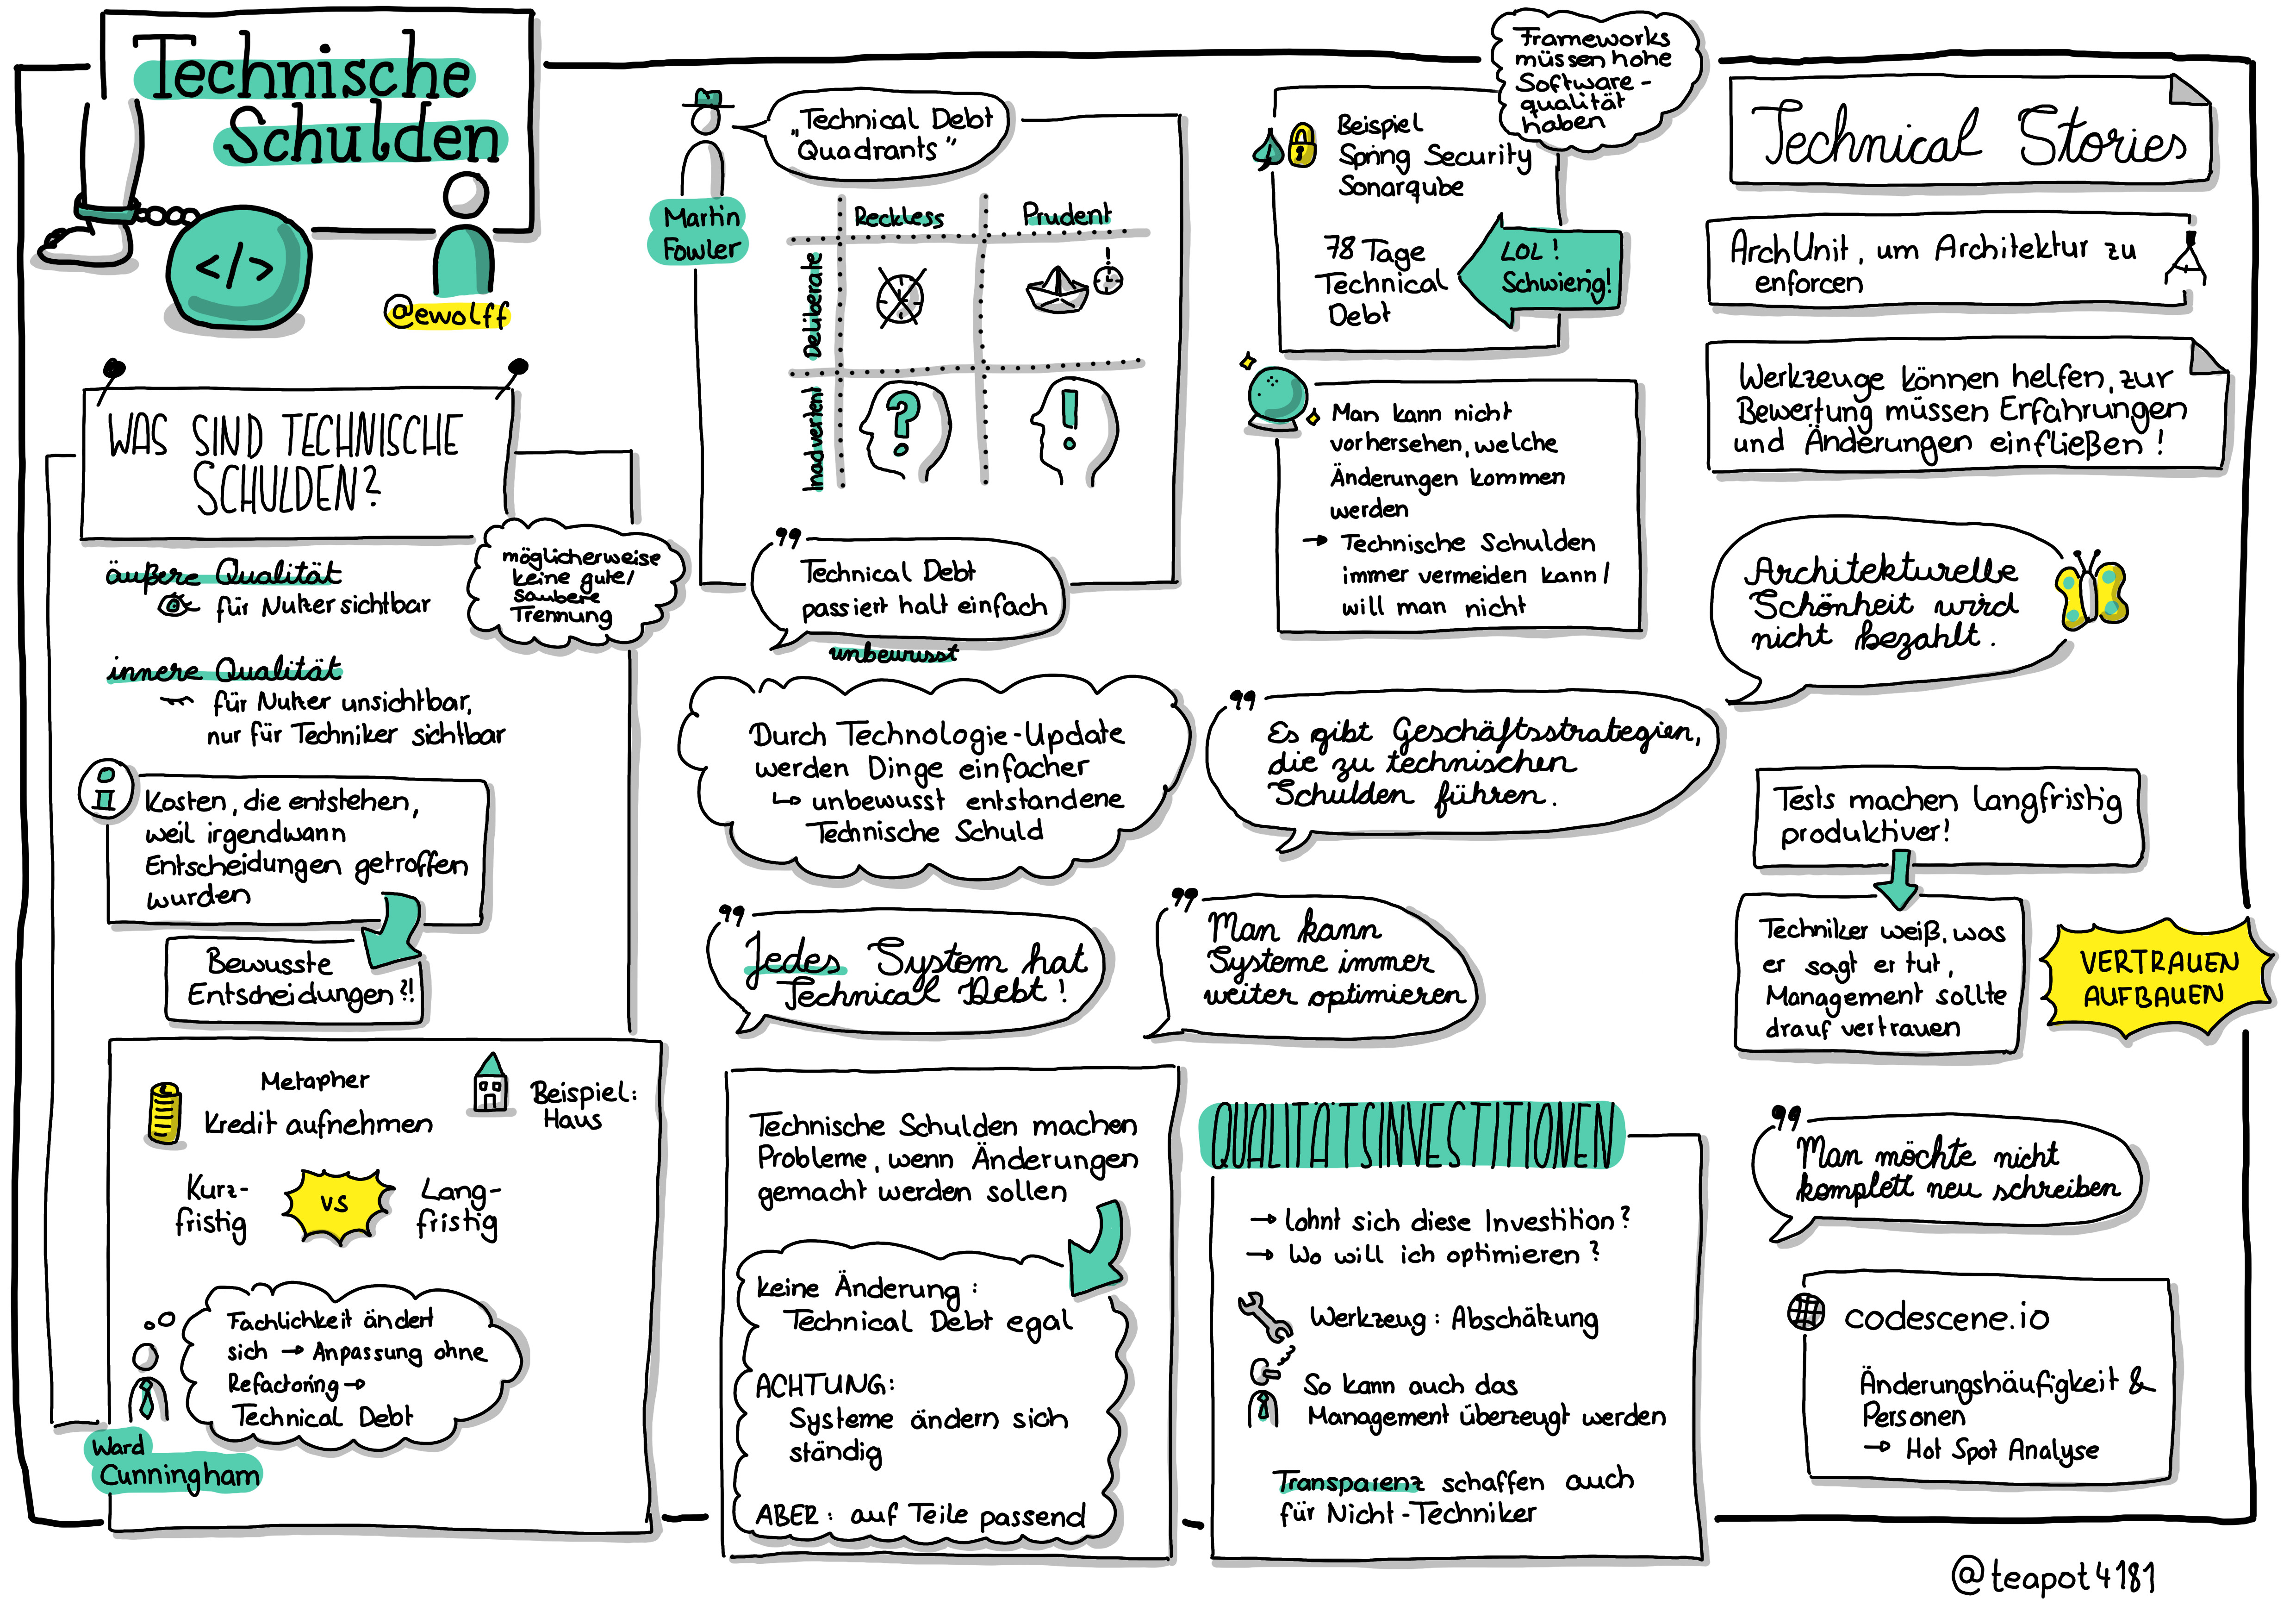 Technische
Schulden
</>
@ewolff
WAS SIND TECHNISCHE
SCHULDEN?
äußere Qualität
für Nutzer sichtbar
möglicherweise
keine gute/
saubere
Trennung
innere Qualität
für Nutzer unsichtbar,
nur für Techniker sichtbar
i
Kosten, die entstehen,
weil irgendwann
Entscheidungen getroffen
wurden
Bewusste
Entscheidungen?!
Metapher
Kredit aufnehmen
Beispiel:
Haus
Kurz-
fristig
vs
Lang-
fristig
Fachlichkeit ändert
sich → Anpassung ohne
Refactoring →
Technical Debt
Ward
Cunningham
Martin
Fowler
„Technical Debt
Quadrants"
Reckless
Prudent
Deliberate
Inadvertent
?
!
" Technical Debt
passiert halt einfach
unbewusst
Durch Technologie-Update
werden Dinge einfacher
↳ unbewusst entstandene
Technische Schuld
" Jedes System hat
Technical Debt!
" Man kann
Systeme immer
weiter optimieren
Technische Schulden machen
Probleme, wenn Änderungen
gemacht werden sollen
keine Änderung:
Technical Debt egal
ACHTUNG:
Systeme ändern sich
ständig
ABER: auf Teile passend
Frameworks
müssen hohe
Software-
qualität
haben
Beispiel
Spring Security
Sonarqube
78 Tage
Technical
Debt
LOL!
Schwierig!
Man kann nicht
vorhersehen, welche
Änderungen kommen
werden
→ Technische Schulden
immer vermeiden kann/
will man nicht
" Es gibt Geschäftsstrategien,
die zu technischen
Schulden führen.
QUALITÄTSINVESTITIONEN
→ Lohnt sich diese Investition?
→ Wo will ich optimieren?
Werkzeug: Abschätzung
So kann auch das
Management überzeugt werden
Transparenz schaffen auch
für Nicht-Techniker
Technical Stories
ArchUnit, um Architektur zu
enforcen
Werkzeuge können helfen, zur
Bewertung müssen Erfahrungen
und Änderungen einfließen!
Architekturelle
Schönheit wird
nicht bezahlt.
Tests machen langfristig
produktiver!
Techniker weiß, was
er sagt er tut,
Management sollte
drauf vertrauen
VERTRAUEN
AUFBAUEN
" Man möchte nicht
komplett neu schreiben
codescene.io
Änderungshäufigkeit &
Personen
→ Hot Spot Analyse
@teapot4181